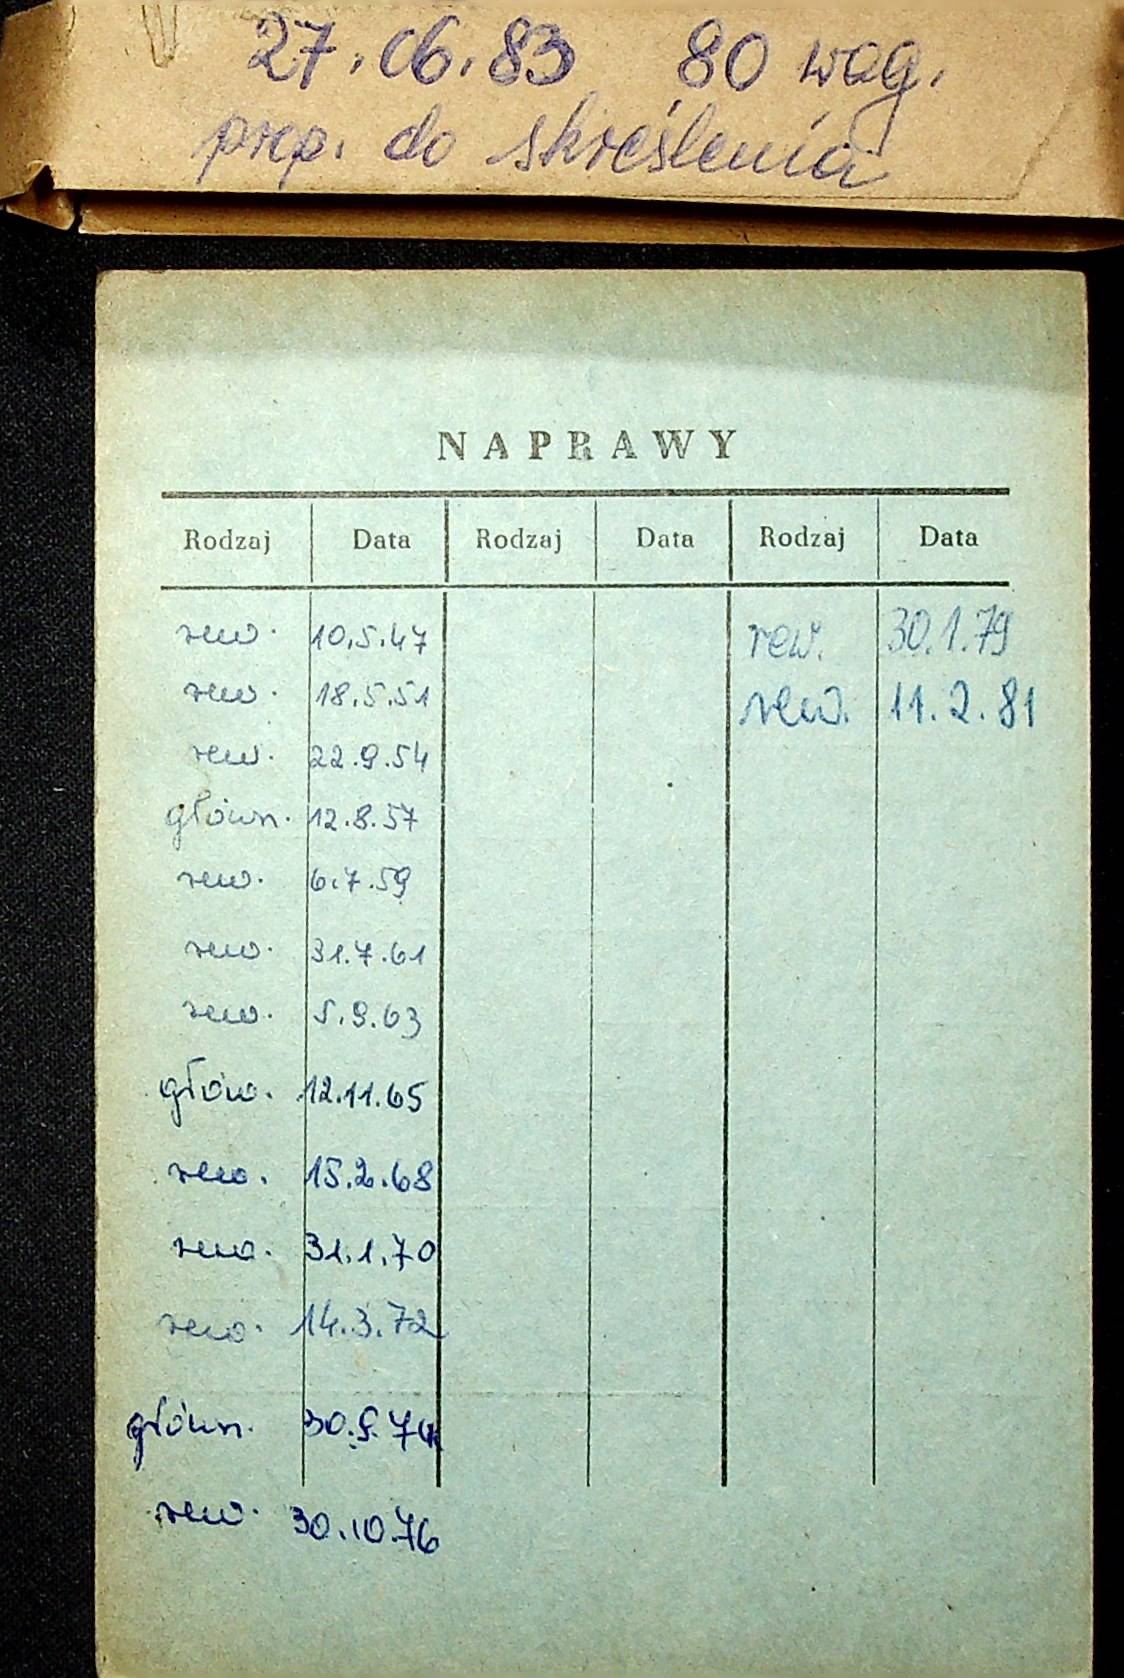 27.06.83 80 wag.
prop. do skreślenia
NAPRAWY
Rodzaj Data Rodzaj Data Rodzaj Data
rew. 10.5.47 rew. 30.1.79
rew. 18.5.51 rew. 11.2.81
rew. 22.9.54
główn. 12.8.57
rew. 6.7.59
rew. 31.7.61
rew. 5.9.63
głów. 12.11.65
rew. 15.2.68
rew. 31.1.70
rew. 14.3.72
główn.
rew. 30.10.76